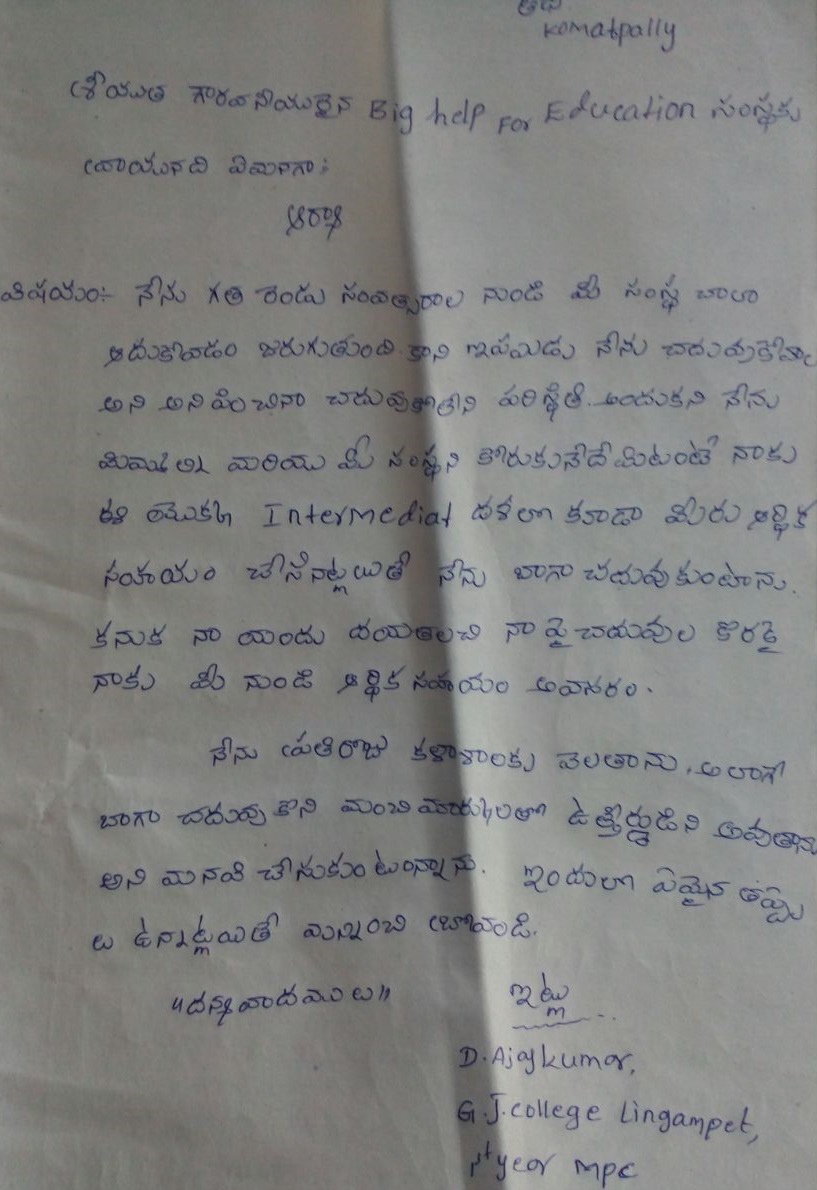 Komatpally
శ్రీయుత గౌరవనీయులైన Big help For Education సంస్థకు
వ్రాయునది ఏమనగా:
విషయం:- నేను గత రెండు సంవత్సరాల నుండి మీ సంస్థ చాలా
ఆదుకోవడం జరుగుతుంది. కాని ఇపుడు నేను చదువుకోవాల
అని అనిపించినా చదువుకోలేని పరిస్థితి. అందుకని నేను
మిమ్మల్ని మరియు మీ సంస్థని కోరుకునేదేమిటంటే నాకు
ఈ యొక్క Intermediat దశలో కూడా మీరు ఆర్థిక
సహయం చేసినట్లయితే నేను బాగా చదువుకుంటాను.
కనుక నా యందు దయతలచి నా పై చదువుల కొరకై
నాకు మీ నుండి ఆర్థిక సహయం అవసరం.
నేను ప్రతిరోజు కళాశాలకు వెలతాను. అలాగే
బాగా చదువుకొని మంచి మార్కులతో ఉత్తీర్ణుడిని అవుతాను
అని మనవి చేసుకుంటున్నాను. ఇందులో ఏమైన తప్పు
లు ఉన్నట్లయితే మన్నించి బ్రోవండి.
"దన్యవాదములు" ఇట్లు
D. Ajaykumar,
G.J. college Lingampet,
1st year mpc